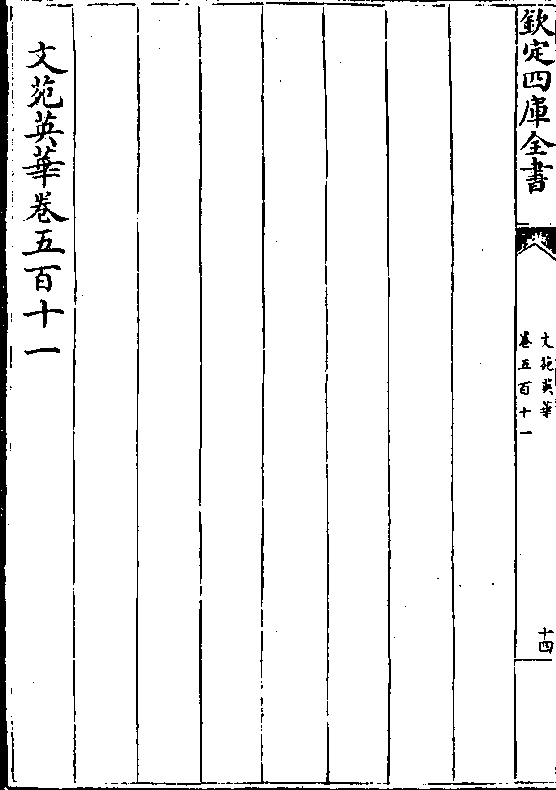 欽定四庫全書
文苑英華
卷五百十一
十四
文苑英華卷五百十一